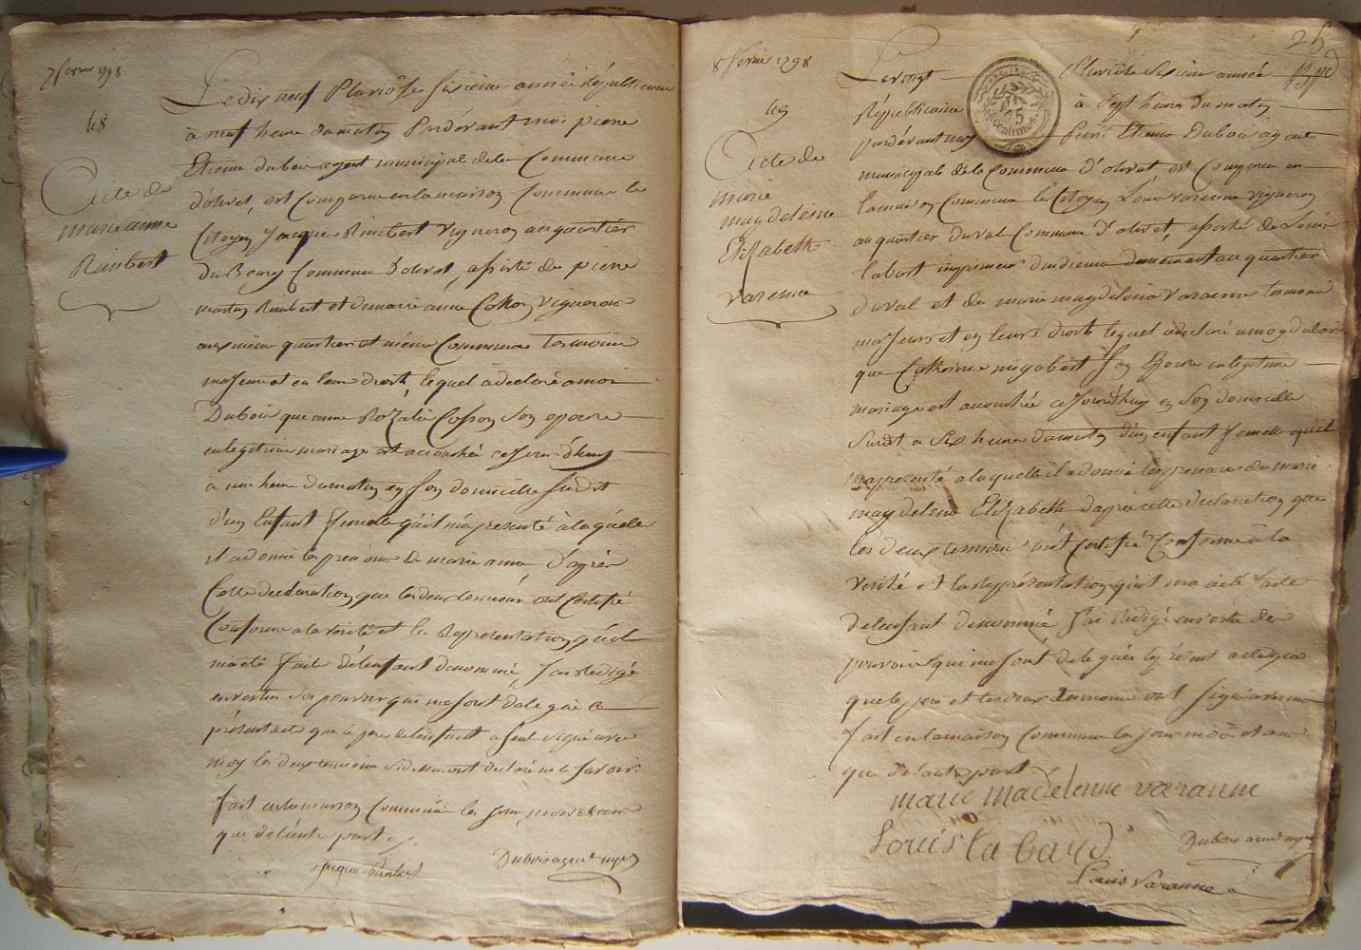 7 février 1798
48
Acte de
marie anne
Rimbert
Le dix neuf Pluviôse sixième année Républicaine
à neuf heure du matin Pardevant moi pierre
Etienne dubois agent municipal de la Commune
d'olivet, est Comparu en la maison Commune le
Citoyen Jacques Rimbert Vigneron au quartier
du Bourg Commune d'olivet, assisté de pierre
Rimbert et de marie anne Vigneron
au même quartier et même Commune temoins
majeurs et en leurs droits, lequel a déclaré a moi
Dubois que anne Rozalie Cosson son epouse
en legitime mariage est accouchée ce jourd'huy
a une heure du matin en son domicille susdit
d'un Enfant femelle qu'il m'a presenté à laquelle
il a donné les prenoms de marie anne D'après
Cette declaration que les deux temoins ont Certifié
Conforme a la vérité et la Représentation qu'il
m'a été faite de l'enfant denommé, J'ai rédigé
en vertu des pouvoirs qui me sont délégués le
présent acte que le pere de l'enfant a seul signé avec
moy les deux temoins ont declaré ne le savoir.
fait en la maison Commune les jour, mois et an
que de l'autre part
Jacques Rimbert
Dubois agent mpal
8 février 1798
25
49
Acte de
marie
magdeleine
Elizabeth
Varenne
Le vingt Pluviôse Sixième année
Républicaine à Sept heures du matin
pardevant moy pierre Etienne Dubois agent
municipal de la Commune d'olivet est Comparu en
la maison Commune le Citoyen Louis varenne vigneron
au quartier du val Commune d'olivet, assisté de Louis
labart demeurant au quartier
du val et de marie magdeleine Varanne temoins
majeurs et en leurs droits lequel a declaré a moy dubois
que Catherine Son Epouse en legitime
mariage est accouchée ce Jourd'huy en Son domicille
Susdit a Six heures du matin d'un enfant femelle qu'il
m'a presenté a laquelle il a donné les prenoms de marie
magdeleine Elizabeth d'après cette declaration que
les deux temoins m'ont certifié Conforme à la
Verité et la Représentation qui m'a été faite
de l'enfant denommé J'ai rédigé en vertu des
pouvoirs qui me sont délégués le présent acte
que le pere et les deux temoins ont signé avec moi
fait en la maison Commune les jour mois et an
que de l'autre part
marie madelenne varanne
Louis labard
Dubois agent mpal
Louis Varanne